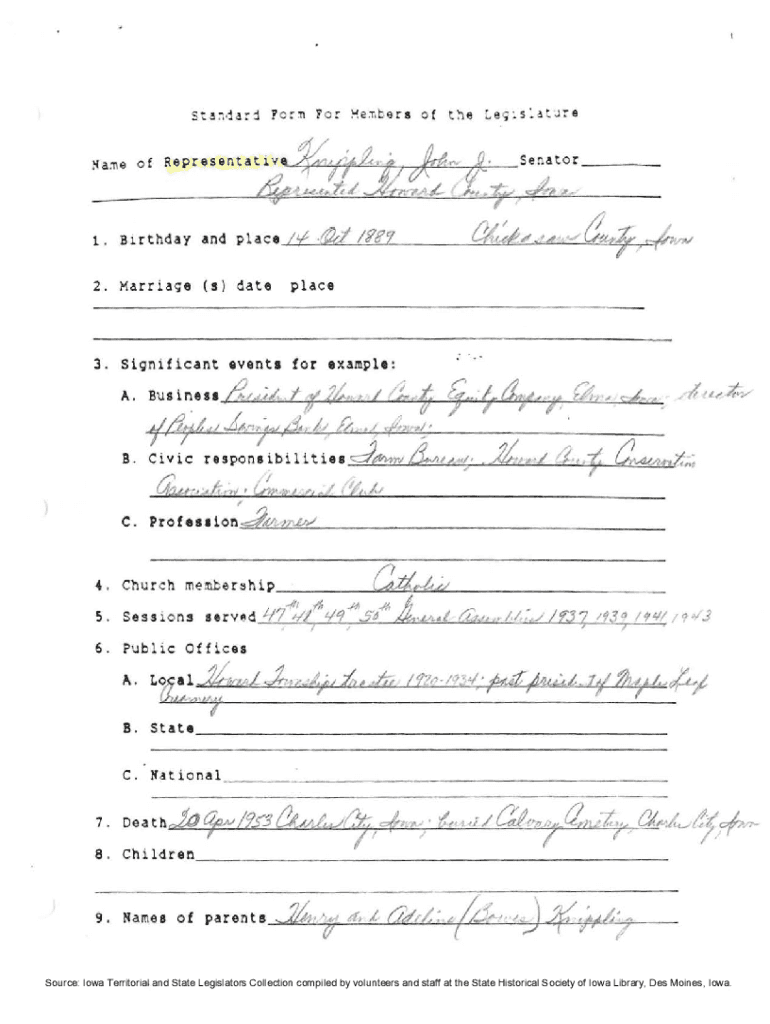 Standard Form For Members of the Legislature
Name of Representative Knippling, John J. Senator
Represented Howard County, Iowa
1. Birthday and place 14 Oct 1889 Chickasaw County, Iowa
2. Marriage (s) date place
3. Significant events for example:
A. Business President of Howard County Equity Company, Elma, Iowa; director
of Peoples Savings Bank, Elma, Iowa;
B. Civic responsibilities Farm Bureau; Howard County Conservation
Association; Commercial Club
C. Profession Farmer
4. Church membership Catholic
5. Sessions served 47th, 48th, 49th, 50th General Assemblies 1937, 1939, 1941, 1943
6. Public Offices
A. Local Howard Township trustee 1920-1934; past president of Maple Leaf
Creamery
B. State
C. National
7. Death 20 Apr 1953 Charles City, Iowa; buried Calvary Cemetery, Charles City, Iowa
8. Children
9. Names of parents Henry and Adeline (Bowes) Knippling
Source: Iowa Territorial and State Legislators Collection compiled by volunteers and staff at the State Historical Society of Iowa Library, Des Moines, Iowa.